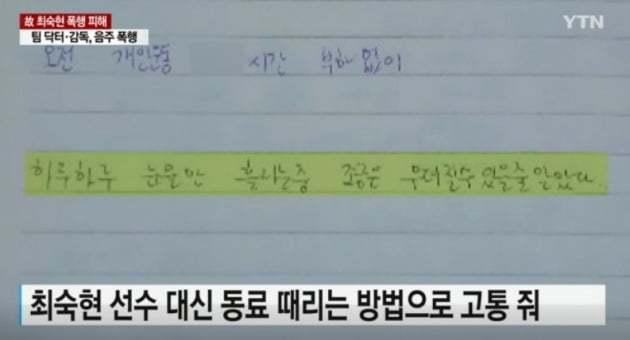 故 최숙현 폭행 피해
YTN
팀 닥터·감독, 음주 폭행
오전 개인운동 시간 부하 없이
하루하루 눈물만 흘리는중 조금은 무뎌질수 있을줄 알았다.
최숙현 선수 대신 동료 때리는 방법으로 고통 줘